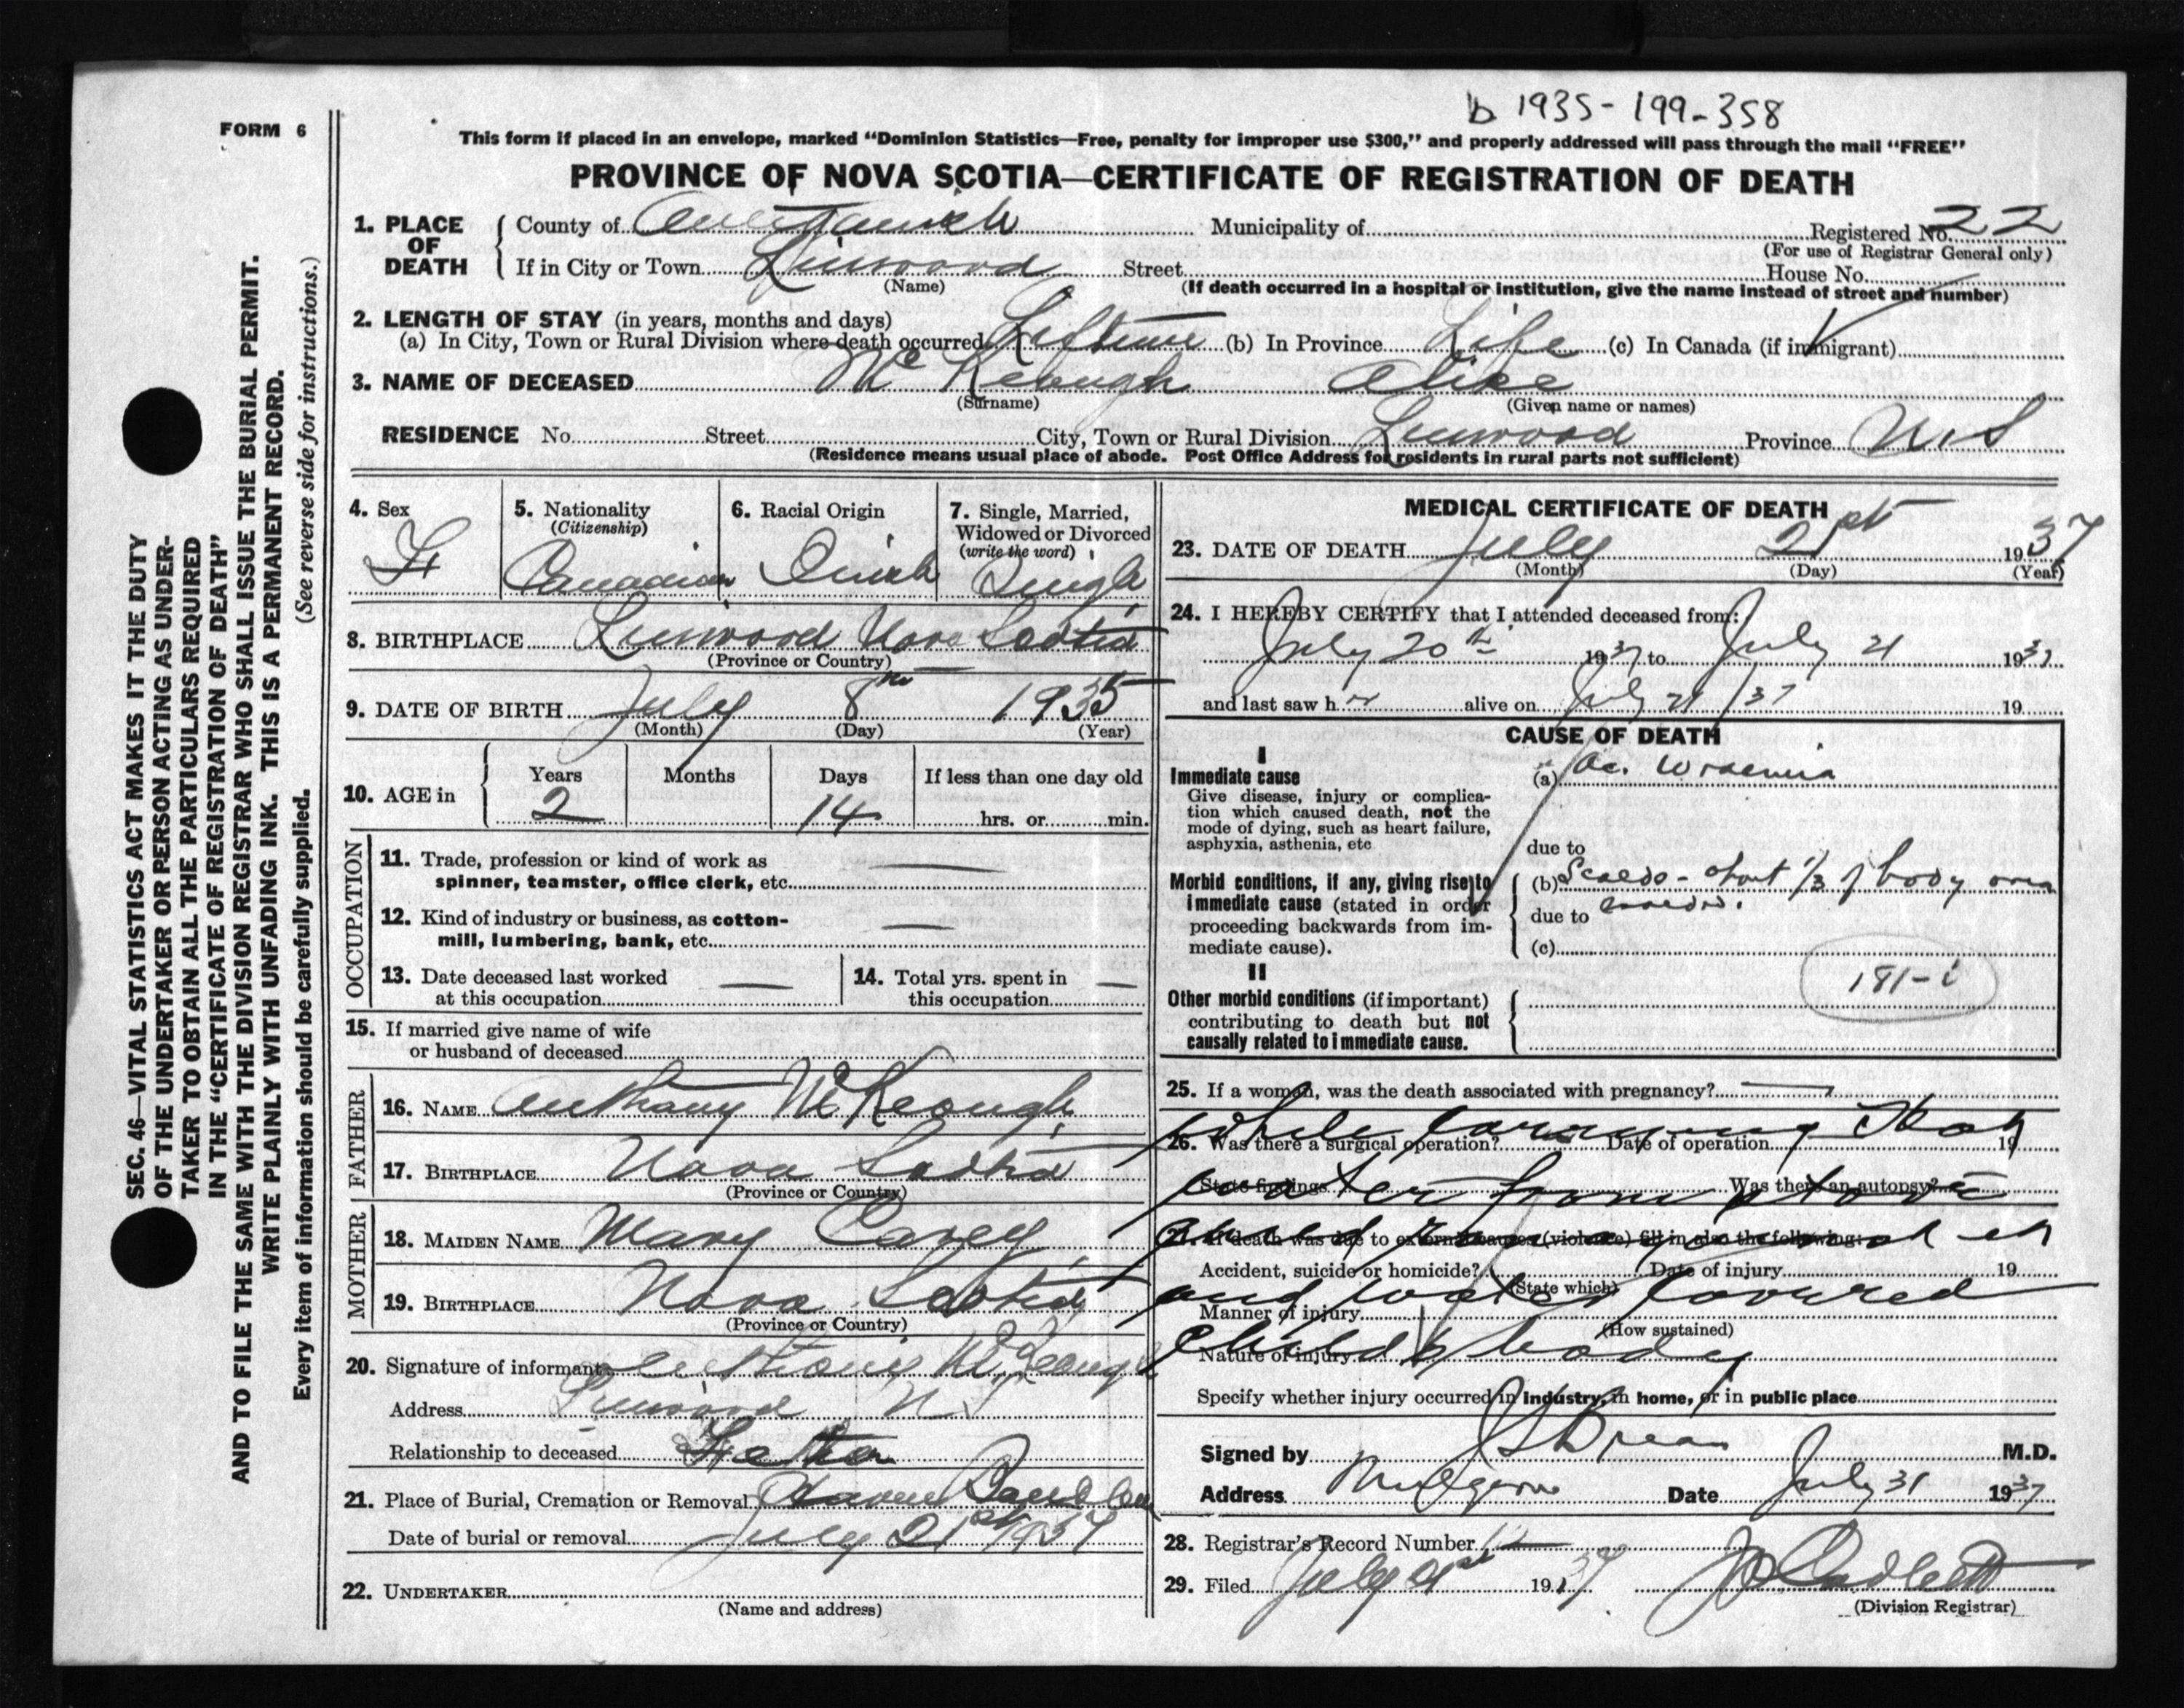 b 1935-199-358
FORM 6
This form if placed in an envelope, marked "Dominion Statistics—Free, penalty for improper use $300," and properly addressed will pass through the mail "FREE"
PROVINCE OF NOVA SCOTIA—CERTIFICATE OF REGISTRATION OF DEATH
SEC. 46—VITAL STATISTICS ACT MAKES IT THE DUTY
OF THE UNDERTAKER OR PERSON ACTING AS UNDER-
TAKER TO OBTAIN ALL THE PARTICULARS REQUIRED
IN THE "CERTIFICATE OF REGISTRATION OF DEATH"
AND TO FILE THE SAME WITH THE DIVISION REGISTRAR WHO SHALL ISSUE THE BURIAL PERMIT.
WRITE PLAINLY WITH UNFADING INK. THIS IS A PERMANENT RECORD.
Every item of information should be carefully supplied. (See reverse side for instructions.)
1. PLACE OF DEATH County of Antigonish Municipality of Registered No. 22
(For use of Registrar General only)
If in City or Town Linwood Street House No.
(Name) (If death occurred in a hospital or institution, give the name instead of street and number)
2. LENGTH OF STAY (in years, months and days)
(a) In City, Town or Rural Division where death occurred Liftime (b) In Province Life (c) In Canada (if immigrant)
3. NAME OF DECEASED McKeough Alice
(Surname) (Given name or names)
RESIDENCE No. Street City, Town or Rural Division Linwood Province N.S
(Residence means usual place of abode. Post Office Address for residents in rural parts not sufficient)
4. Sex F
5. Nationality (Citizenship) Canadian
6. Racial Origin Irish
7. Single, Married, Widowed or Divorced (write the word) Single
8. BIRTHPLACE Linwood Nova Scotia
(Province or Country)
9. DATE OF BIRTH July 8th 1935
(Month) (Day) (Year)
10. AGE in Years 2 Months Days 14 If less than one day old hrs. or min.
OCCUPATION
11. Trade, profession or kind of work as
spinner, teamster, office clerk, etc.
12. Kind of industry or business, as cotton-
mill, lumbering, bank, etc.
13. Date deceased last worked
at this occupation
14. Total yrs. spent in
this occupation
15. If married give name of wife
or husband of deceased
FATHER
16. NAME Anthony McKeough
17. BIRTHPLACE Nova Scotia
(Province or Country)
MOTHER
18. MAIDEN NAME Mary Carey
19. BIRTHPLACE Nova Scotia
(Province or Country)
20. Signature of informant McKeough
Address Linwood N.S
Relationship to deceased Father
21. Place of Burial, Cremation or Removal
Date of burial or removal July 21st 1937
22. UNDERTAKER
(Name and address)
MEDICAL CERTIFICATE OF DEATH
23. DATE OF DEATH July 21st 1937
(Month) (Day) (Year)
24. I HEREBY CERTIFY that I attended deceased from:
July 20th 1937 to July 21 1937
and last saw h r alive on July 21/37 19
CAUSE OF DEATH
I
Immediate cause (a) Ac. Uraemia
Give disease, injury or complica-
tion which caused death, not the
mode of dying, such as heart failure,
asphyxia, asthenia, etc
due to
Morbid conditions, if any, giving rise to
immediate cause (stated in order
proceeding backwards from im-
mediate cause).
(b) Scalds - about 1/3 of body area
due to
(c)
181-i
II
Other morbid conditions (if important)
contributing to death but not
causally related to immediate cause.
25. If a woman, was the death associated with pregnancy?
26. Was there a surgical operation? Date of operation 19
State findings Was there an autopsy?
27. If death was due to external causes (violence) fill in also the following:
Accident, suicide or homicide? Date of injury 19
(State which)
Manner of injury
(How sustained)
Nature of injury
Specify whether injury occurred in industry, in home, or in public place
while carrying Hot
water from stove
and water covered
child's body
Signed by M.D.
Address Mulgrave Date July 31 1937
28. Registrar's Record Number 12
29. Filed July 1937
(Division Registrar)